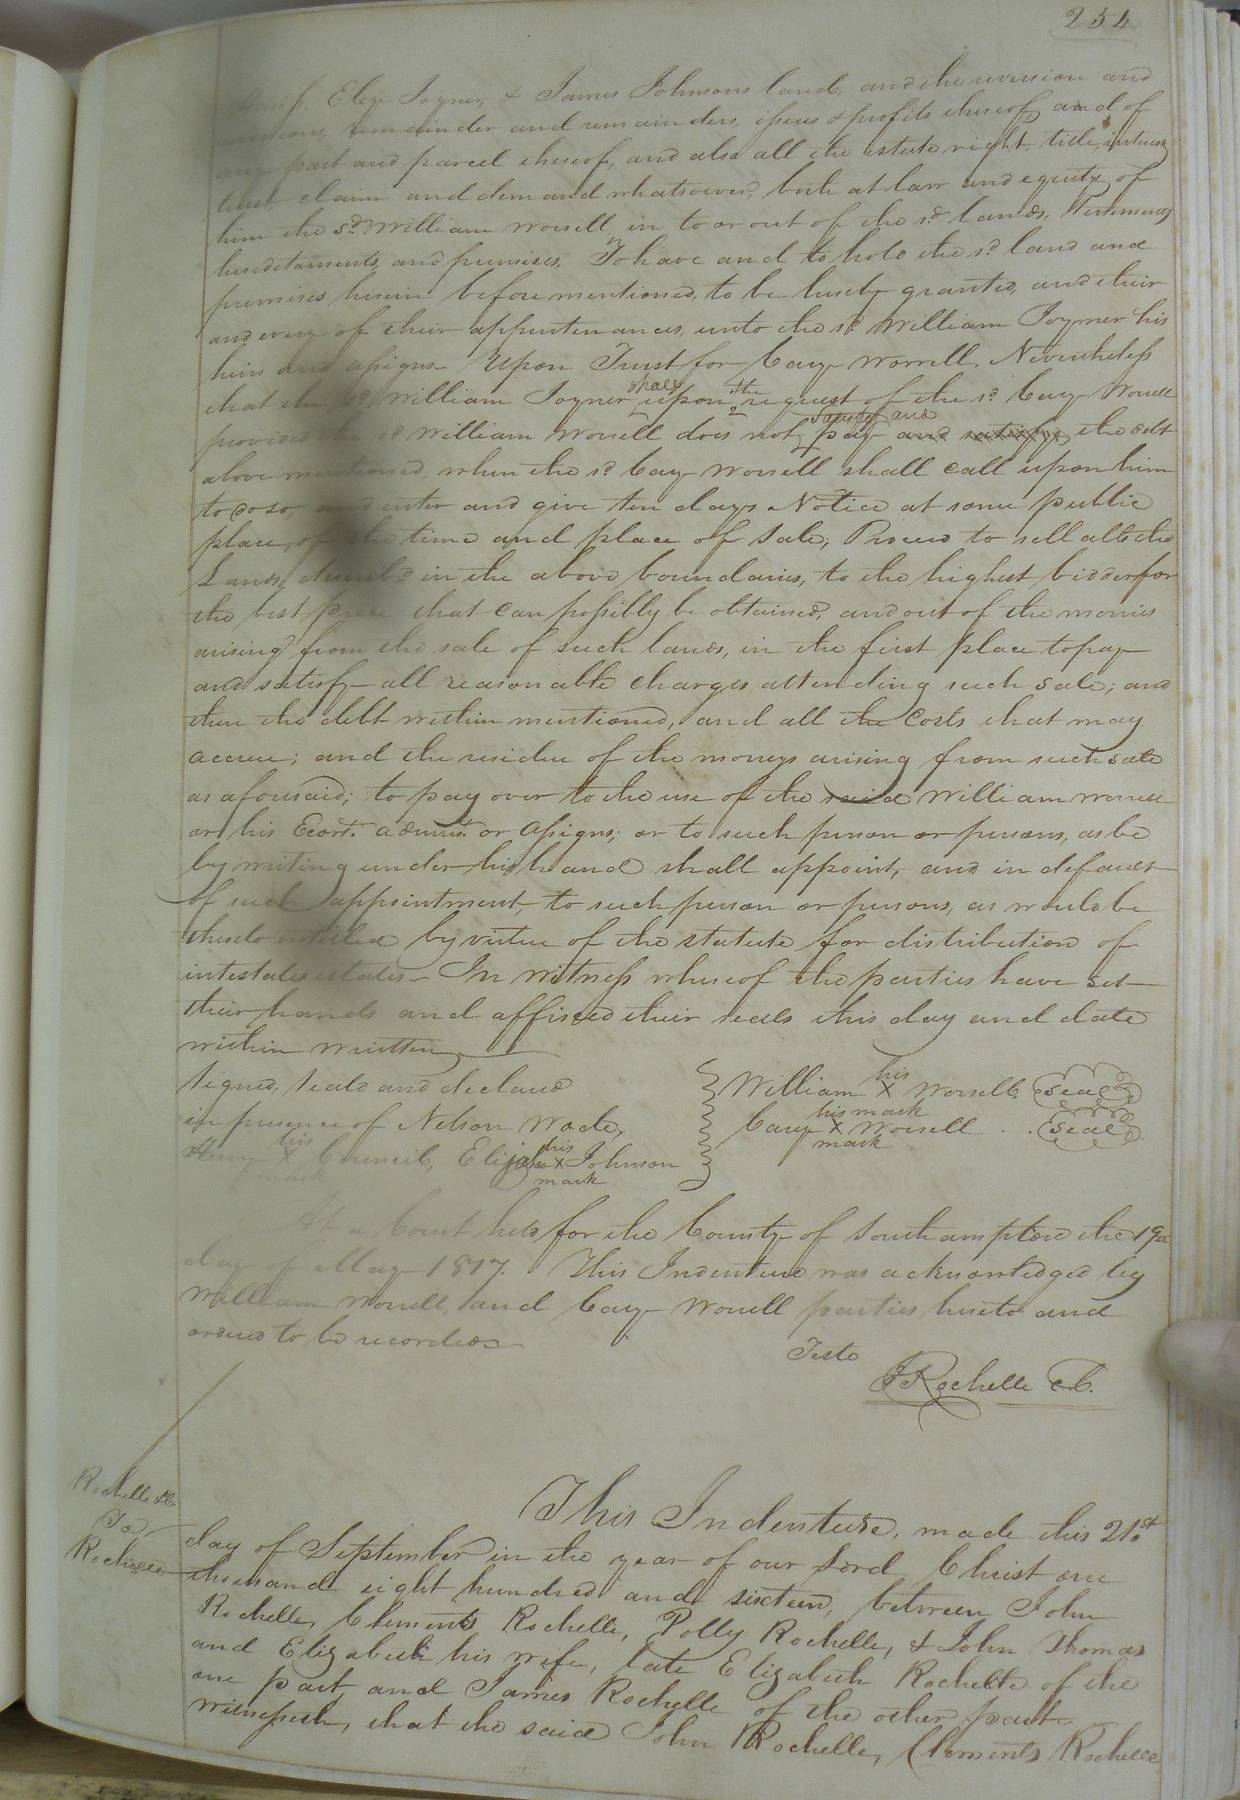 254
Eliza Joyner, & James Johnsons land, and the reversion and
remainder and remainders, issues & profits thereof, and of
every part and parcel thereof, and also all the estate right, title, interest
trust, claim and demand whatsoever, both at law and equity of
him the sd William Worrell, in to or out of the sd lands, Tenements
hereditaments, and premises. To have and to hold the sd land and
premises, herein before mentioned, to be hereby granted, and their
and every of their appurtenances, unto the sd William Joyner his
heirs and assigns Upon Trust for Cary Worrell. Nevertheless
that the sd William Joyner shall upon the request of the sd Cary Worrell
provided the sd William Worrell does not satisfy and pay and satisfy, the debt
above mentioned, when the sd Cary Worrell shall call upon him
to do so, and enter and give ten days Notice at some public
place, of the time and place of sale; Proceed to sell all the
Lands, describd in the above boundaries, to the highest bidder for
the best price that can possibly be obtained, and out of the monies
arising from the sale of such lands, in the first place to pay
and satisfy all reasonable charges attending such sale; and
then the debt within mentioned, and all the Costs that may
accrue; and the residue of the moneys arising from such sale
as aforesaid; to pay over to the use of the said William Worrell
or his Exors. admrs. or assigns; or to such person or persons, as he
by writing under his hand shall appoint, and in default
of such appointment, to such person or persons, as would be
thereto entitled by virtue of the statute for distribution of
intestates estates - In witness whereof the parties have set
their hands and affixed their seals this day and date
within written
Signed, Seald and declared
in presence of Nelson Wade,
Henry his X mark Council, Elijah his X mark Johnson
William his X mark Worrell. Seal
Cary his X mark Worrell . . Seal
At a Court held for the County of Southampton the 19th
day of May 1817. This Indenture was acknowledged by
William Worrell, and Cary Worrell parties hereto and
ordered to be recorded
Teste
J Rochelle C.C.
Rochelle &c
To
Rochelle
This Indenture, made this 21st
day of September in the year of our Lord Christ one
thousand eight hundred and sixteen, between John
Rochelle, Clements Rochelle, Polly Rochelle, & John Thomas
and Elizabeth his wife, late Elizabeth Rochelle of the
one part, and James Rochelle of the other part
witnesseth, that the said John Rochelle, Clements Rochelle